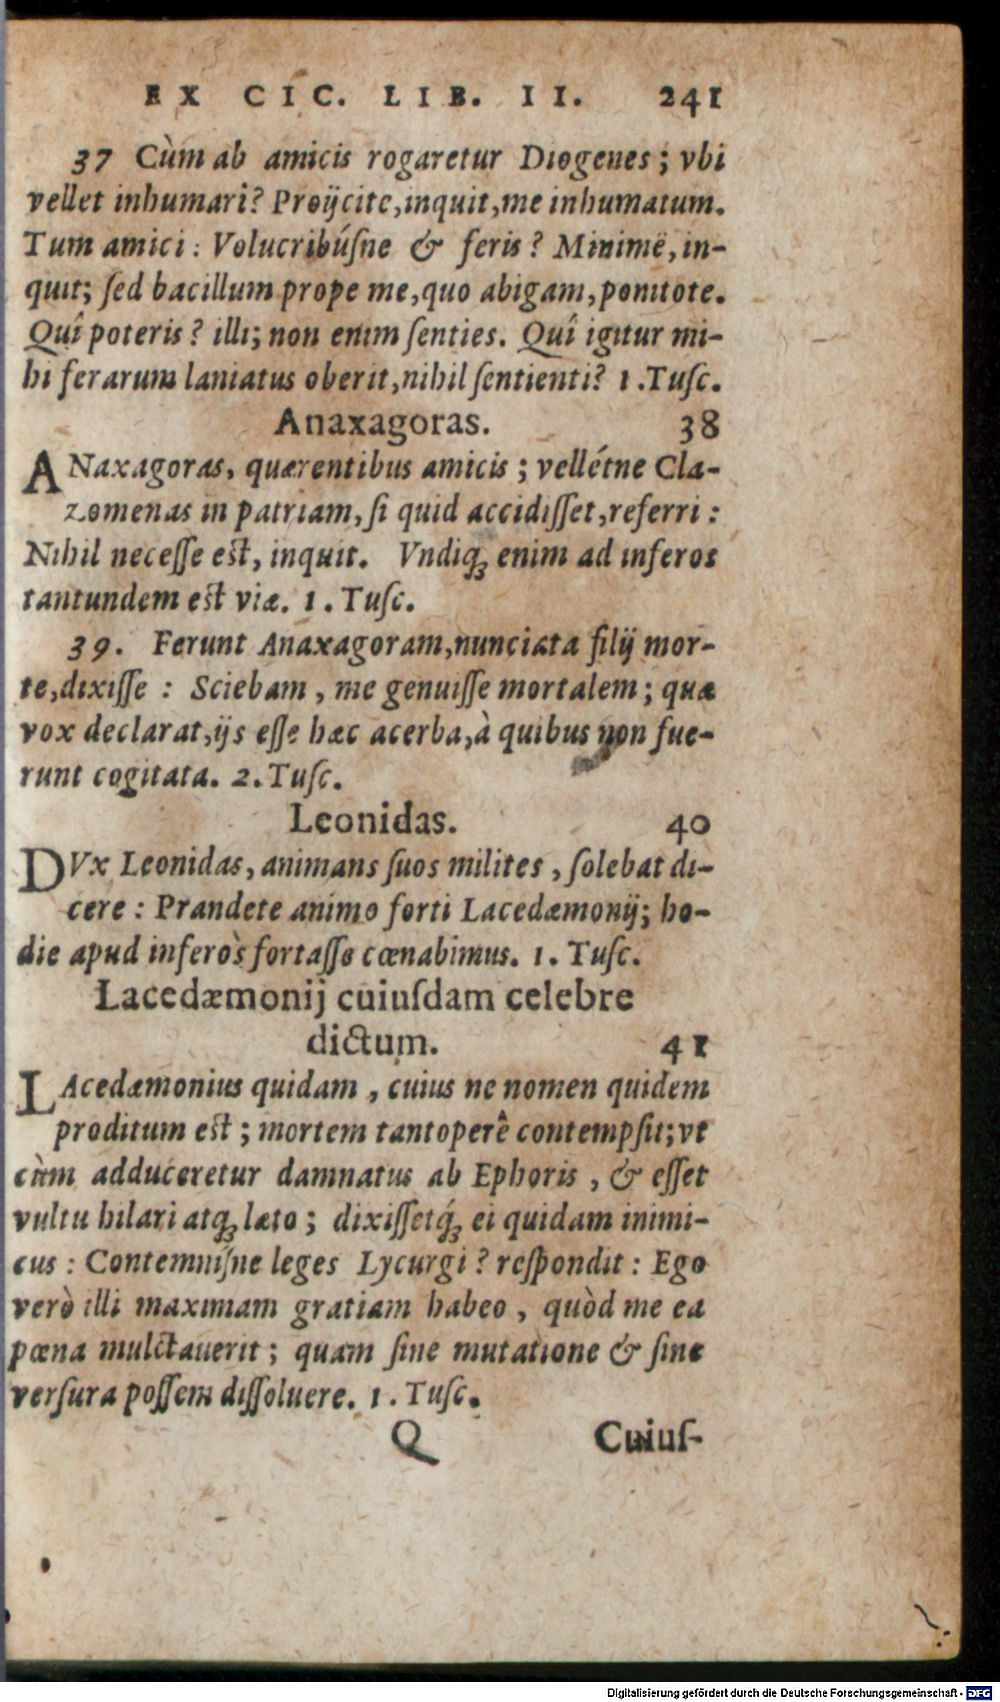 EX CIC. LIB. II. 241
37 Cùm ab amicis rogaretur Diogenes; vbi
vellet inhumari? Proijcite, inquit, me inhumatum.
Tum amici: Volucribúſne & feris? Minimè, in-
quit; ſed bacillum prope me, quo abigam, ponitote.
Quî poteris? illi; non enim ſenties. Quî igitur mi-
hi ferarum laniatus oberit, nihil ſentienti? 1. Tuſc.
Anaxagoras. 38
ANaxagoras, quærentibus amicis; vellétne Cla-
zomenas in patriam, ſi quid accidiſſet, referri:
Nihil neceſſe eſt, inquit. Vndiq; enim ad inferos
tantundem eſt viæ. 1. Tuſc.
39. Ferunt Anaxagoram, nunciata filij mor-
te, dixiſſe: Sciebam, me genuiſſe mortalem; quæ
vox declarat, ijs eſſe hæc acerba, à quibus non fue-
runt cogitata. 2. Tuſc.
Leonidas. 40
DVx Leonidas, animans ſuos milites, ſolebat di-
cere: Prandete animo forti Lacedæmonij; ho-
die apud inferos fortaſſe cœnabimus. 1. Tuſc.
Lacedæmonij cuiuſdam celebre
dictum. 41
LAcedæmonius quidam, cuius ne nomen quidem
proditum eſt; mortem tantoperê contempſit; vt
cùm adduceretur damnatus ab Ephoris, & eſſet
vultu hilari atq; læto; dixiſſetq́; ei quidam inimi-
cus: Contemníſne leges Lycurgi? reſpondit: Ego
verò illi maximam gratiam habeo, quòd me ea
pœna mulctauerit; quam ſine mutatione & ſine
verſura poſſem diſſoluere. 1. Tuſc.
Q Cuiuſ-
Digitalisierung gefördert durch die Deutsche Forschungsgemeinschaft - DFG